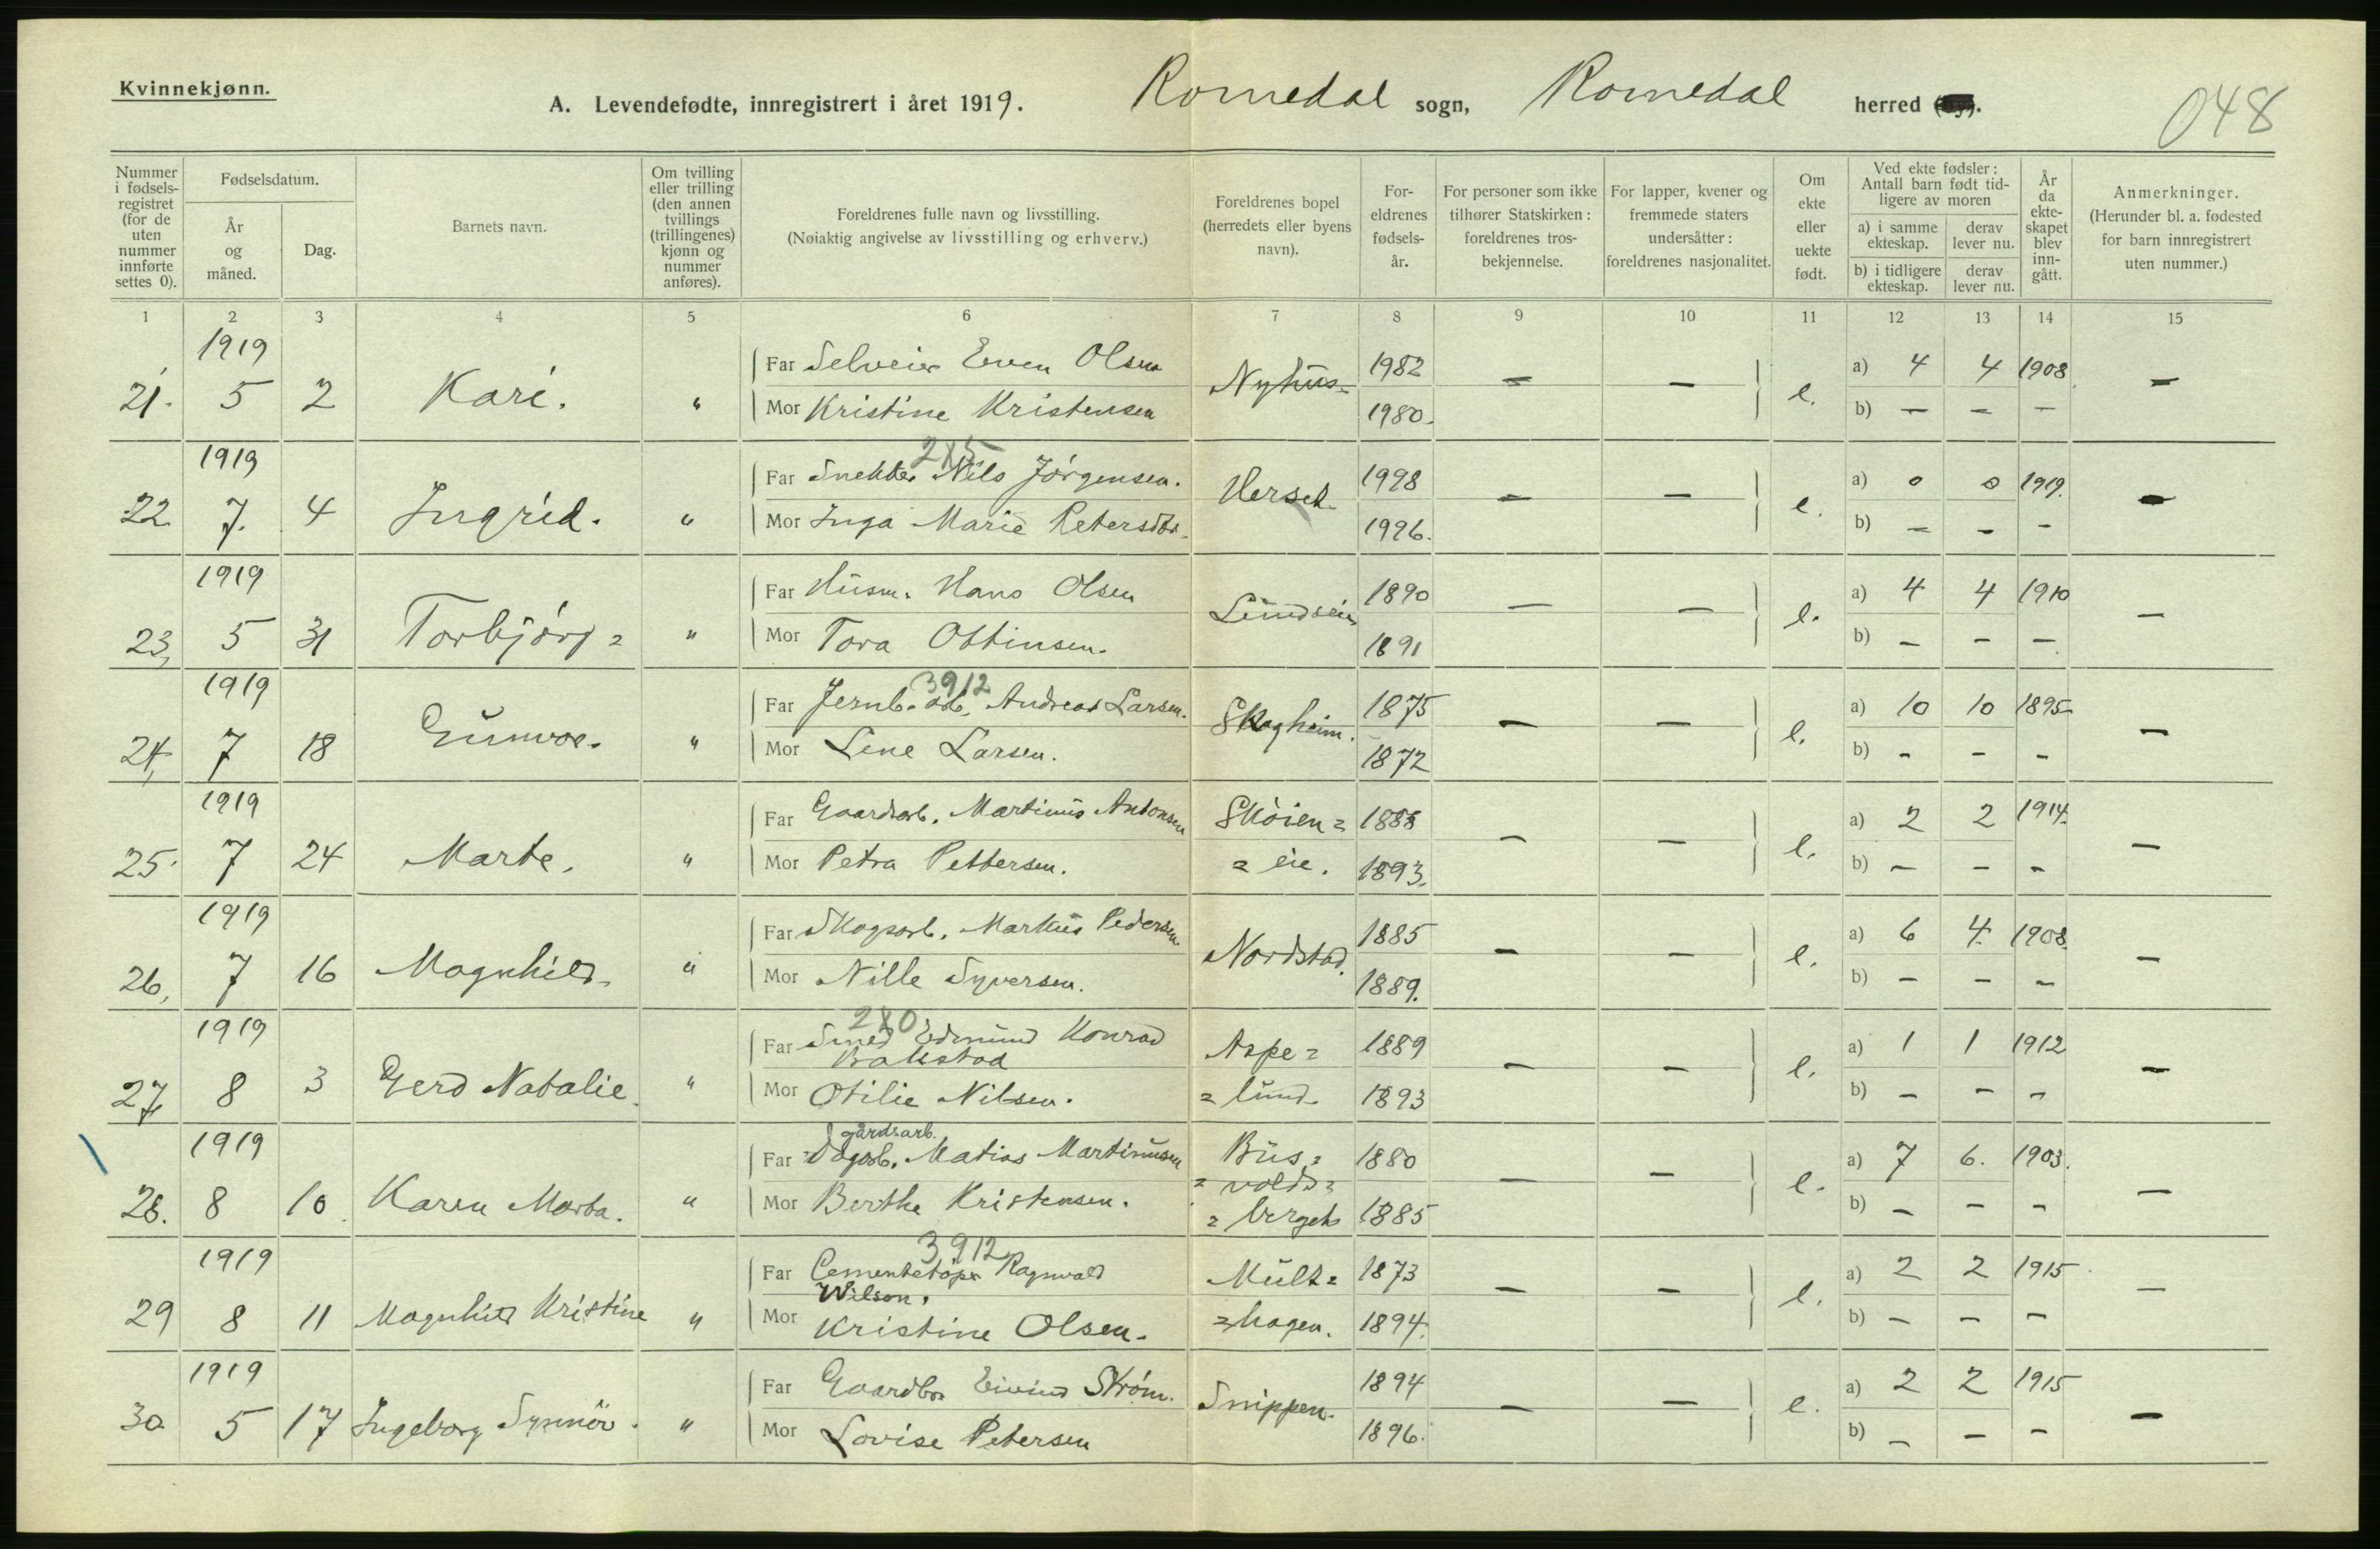 Kvinnekjønn.
A. Levendefødte, innregistrert i året 1919. Romedal sogn, Romedal herred
048
Nummer i fødsels-registret (for de uten nummer innførte settes 0).
Fødselsdatum.
År og måned.
Dag.
Barnets navn.
Om tvilling eller trilling (den annen tvillings (trillingenes) kjønn og nummer anføres).
Foreldrenes fulle navn og livsstilling.
(Nøiaktig angivelse av livsstilling og erhverv.)
Foreldrenes bopel (herredets eller byens navn).
For-eldrenes fødsels-år.
For personer som ikke tilhører Statskirken: foreldrenes tros-bekjennelse.
For lapper, kvener og fremmede staters undersåtter: foreldrenes nasjonalitet.
Om ekte eller uekte født.
Ved ekte fødsler: Antall barn født tid-ligere av moren
a) i samme ekteskap. derav lever nu.
b) i tidligere ekteskap. derav lever nu.
År da ekte-skapet blev inn-gått.
Anmerkninger.
(Herunder bl. a. fødested for barn innregistrert uten nummer.)
1 2 3 4 5 6 7 8 9 10 11 12 13 14 15
1919 Far Selveier Even Olsen 1982 a) 4 4 1908
21. 5 2 Kari. " Mor Kristine Kristensen Nyhus= 1980. — — e. b) — — — —
2x5
1919 Far Snekker Nils Jørgensen. 1998 a) 0 0 1919.
22 7. 4 Ingrid. " Mor Inga Marie Petersdtr. Herset 1996. — — e. b) — — — —
1919 Far Husm. Hans Olsen 1890 a) 4 4 1910
23, 5 31 Torbjørg = " Mor Tora Ottinsen. 1891 — — e. b) — — — —
3912
1919 Far Jernb. arb. Andreas Larsen. 1875 a) 10 10 1895
24, 7 18 Gunvor. " Mor Lene Larsen. Skogheim. 1872 — — e. b) — — — —
1919 Far Gaardsarb. Martinus Antonsen Skøien= 1888 a) 2 2 1914.
25. 7 24 Marte. " Mor Petra Pettersen. =eie. 1893. — — e. b) — — — —
1919 Far Skogsarb. Markus Pedersen. 1885 a) 6 4. 1908.
26, 7 16 Magnhild. " Mor Nille Syversen. Nordstad. 1889. — — e. b) — — — —
2x0
1919 Far Smed Edmund Konrad Bakstad Aspe= 1889 a) 1 1 1912
27, 8 3 Gerd Natalie. " Mor Otilie Nilsen. =lund. 1893 — — e. b) — — — —
gårdsarb.
1919 Far Dagarb. Matias Martinusen Bus= 1880 a) 7 6. 1903.
=volds=
28. 8 10. Karen Marta. " Mor Berthe Kristensen. =berget 1885 — — e. b) — — — —
3912
1919 Far Cementstøper Ragnvald Wilson. Mult= 1873 a) 2 2 1915
29 8 11 Magnhild Kristine " Mor Kristine Olsen. =hagen. 1894. — — e. b) — — — —
1919 Far Gaardbr. Eivind Strøm. 1894 a) 2 2 1915
30. 5 17 Ingeborg Synnöv. " Mor Lovise Petersen Snippen. 1896. — — e. b) — — — —